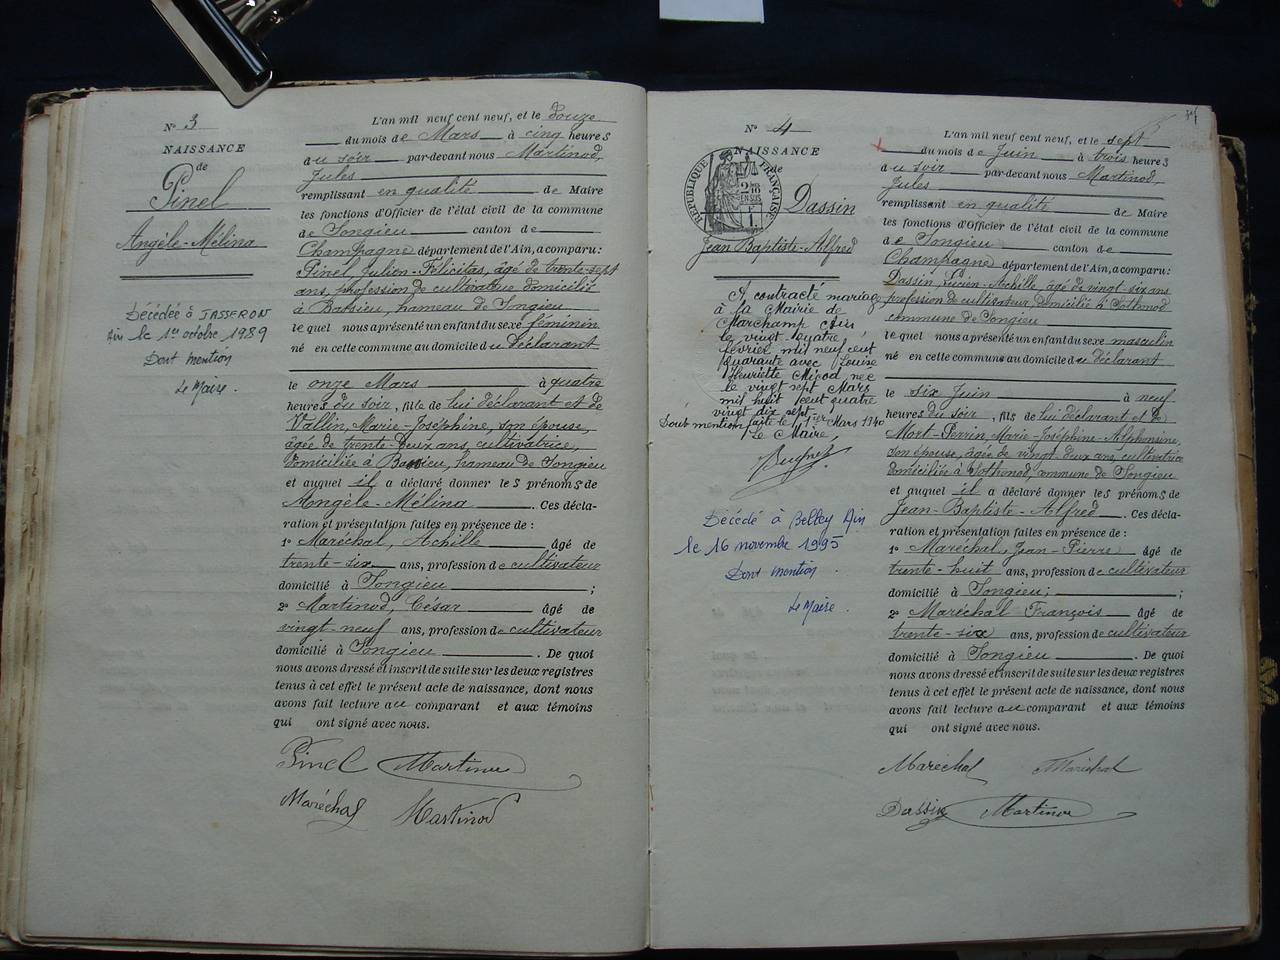 N° 3
NAISSANCE
de
Pinel
Angèle-Mélina
Décédée à JASSERON
Ain le 1er octobre 1989
Dont mention
Le Maire.
L'an mil neuf cent neuf, et le douze
du mois de Mars à cinq heures
du soir par-devant nous Martinod,
Jules
remplissant en qualité de Maire
les fonctions d'Officier de l'état civil de la commune
de Songieu canton de
Champagne département de l'Ain, a comparu:
Pinel, Julien-Félicitas, âgé de trente-sept
ans, profession de cultivateur domicilié
à Bassieu, hameau de Songieu
lequel nous a présenté un enfant du sexe féminin
né en cette commune au domicile du déclarant
le onze Mars à quatre
heures du soir, fille de lui déclarant et de
Vallin, Marie-Joséphine, son épouse,
âgée de trente-deux ans, cultivatrice,
domiciliée à Bassieu, hameau de Songieu
et auquel il a déclaré donner les prénoms de
Angèle-Mélina. Ces décla-
ration et présentation faites en présence de :
1° Maréchal, Achille âgé de
trente-six ans, profession de cultivateur
domicilié à Songieu ;
2° Martinod, César âgé de
vingt-neuf ans, profession de cultivateur
domicilié à Songieu. De quoi
nous avons dressé et inscrit de suite sur les deux registres
tenus à cet effet le présent acte de naissance, dont nous
avons fait lecture au comparant et aux témoins
qui ont signé avec nous.
Pinel Martinod
Maréchal Martinod
N° 4
NAISSANCE
de
RÉPUBLIQUE FRANÇAISE
Dassin
Jean-Baptiste-Alfred
A contracté mariage
à la Mairie de
Marchamp (Ain)
le vingt-quatre
février mil neuf cent
quarante avec Louise
Henriette Migod née
le vingt sept Mars
mil huit cent quatre
vingt dix sept
Dont mention faite le 1er Mars 1940
Le Maire,
Décédé à Belley Ain
le 16 novembre 1995
Dont mention.
Le Maire.
L'an mil neuf cent neuf, et le sept
du mois de Juin à trois heures
du soir par-devant nous Martinod,
Jules
remplissant en qualité de Maire
les fonctions d'Officier de l'état civil de la commune
de Songieu canton de
Champagne département de l'Ain, a comparu:
Dassin, Lucien-Achille, âgé de vingt-six ans
profession de cultivateur, domicilié à Sothonod
commune de Songieu
lequel nous a présenté un enfant du sexe masculin
né en cette commune au domicile du déclarant
le six Juin à neuf
heures du soir, fils de lui déclarant et de
Mort-Perrin, Marie-Joséphine-Alphonsine,
son épouse, âgée de vingt-deux ans, cultivatrice
domiciliée à Sothonod, commune de Songieu
et auquel il a déclaré donner les prénoms de
Jean-Baptiste-Alfred. Ces décla-
ration et présentation faites en présence de :
1° Maréchal, Jean-Pierre âgé de
trente-huit ans, profession de cultivateur
domicilié à Songieu; ;
2° Maréchal François âgé de
trente-six ans, profession de cultivateur
domicilié à Songieu. De quoi
nous avons dressé et inscrit de suite sur les deux registres
tenus à cet effet le présent acte de naissance, dont nous
avons fait lecture au comparant et aux témoins
qui ont signé avec nous.
Maréchal Maréchal
Dassin Martinod